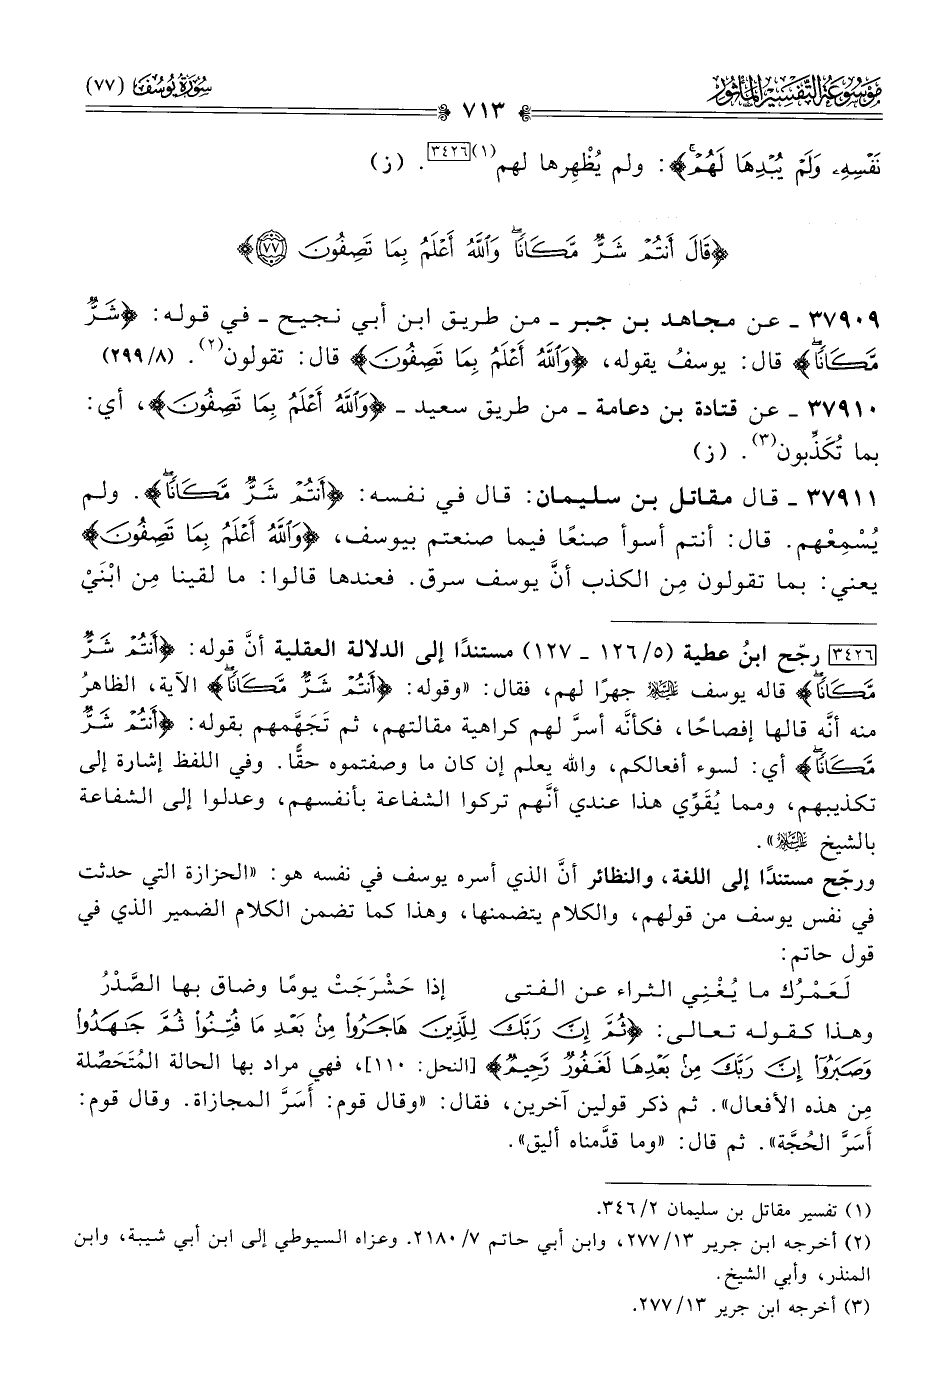 مَوْسُوعَة التَّفْسِير المَأْثُور
سُورَة يُوسُف (٧٧)
٧١٣
نَفْسِهِۦ وَلَمْ يُبْدِهَا لَهُمْ﴾: ولم يُظْهِرها لهم(١)[٣٤٢٦]. (ز)
﴿قَالَ أَنتُمْ شَرٌّ مَّكَانًا وَٱللَّهُ أَعْلَمُ بِمَا تَصِفُونَ ٧٧﴾
٣٧٩٠٩ ـ عن مجاهد بن جبر ـ من طريق ابن أبي نجيح ـ في قوله: ﴿شَرٌّ
مَّكَانًا﴾ قال: يوسفُ يقوله، ﴿وَٱللَّهُ أَعْلَمُ بِمَا تَصِفُونَ﴾ قال: تقولون(٢). (٢٩٩/٨)
٣٧٩١٠ ـ عن قتادة بن دعامة ـ من طريق سعيد ـ ﴿وَٱللَّهُ أَعْلَمُ بِمَا تَصِفُونَ﴾، أي:
بما تُكَذِّبون(٣). (ز)
٣٧٩١١ ـ قال مقاتل بن سليمان: قال في نفسه: ﴿أَنتُمْ شَرٌّ مَّكَانًا﴾. ولم
يُسْمِعْهم. قال: أنتم أسوأ صنعًا فيما صنعتم بيوسف، ﴿وَٱللَّهُ أَعْلَمُ بِمَا تَصِفُونَ﴾
يعني: بما تقولون مِن الكذب أنَّ يوسف سرق. فعندها قالوا: ما لقينا مِن ابْنَيْ
[٣٤٢٦] رجّح ابنُ عطية (١٢٦/٥ ـ ١٢٧) مستندًا إلى الدلالة العقلية أنَّ قوله: ﴿أَنتُمْ شَرٌّ
مَّكَانًا﴾ قاله يوسف عليه السلام جهرًا لهم، فقال: «وقوله: ﴿أَنتُمْ شَرٌّ مَّكَانًا﴾ الآية، الظاهرُ
منه أنَّه قالها إفصاحًا، فكأنَّه أسرَّ لهم كراهية مقالتهم، ثم تَجَهَّمهم بقوله: ﴿أَنتُمْ شَرٌّ
مَّكَانًا﴾ أي: لسوء أفعالكم، والله يعلم إن كان ما وصفتموه حقًّا. وفي اللفظ إشارة إلى
تكذيبهم، ومما يُقَوِّي هذا عندي أنَّهم تركوا الشفاعة بأنفسهم، وعدلوا إلى الشفاعة
بالشيخ عليه السلام».
ورجّح مستندًا إلى اللغة، والنظائر أنَّ الذي أسره يوسف في نفسه هو: «الحزازة التي حدثت
في نفس يوسف من قولهم، والكلام يتضمنها، وهذا كما تضمن الكلام الضمير الذي في
قول حاتم:
لَعَمْرُك ما يُغْنِي الثراء عن الفتى    إذا حَشْرَجَتْ يومًا وضاق بها الصَّدْرُ
وهذا كقوله تعالى: ﴿ثُمَّ إِنَّ رَبَّكَ لِلَّذِينَ هَاجَرُوا۟ مِنۢ بَعْدِ مَا فُتِنُوا۟ ثُمَّ جَٰهَدُوا۟
وَصَبَرُوٓا۟ إِنَّ رَبَّكَ مِنۢ بَعْدِهَا لَغَفُورٌ رَّحِيمٌ﴾ [النحل: ١١٠]، فهي مراد بها الحالة المُتَحَصِّلة
مِن هذه الأفعال». ثم ذكر قولين آخرين، فقال: «وقال قوم: أسَرَّ المجازاة. وقال قوم:
أسَرَّ الحُجَّة». ثم قال: «وما قدَّمناه أليق».
(١) تفسير مقاتل بن سليمان ٣٤٦/٢.
(٢) أخرجه ابن جرير ٢٧٧/١٣، وابن أبي حاتم ٢١٨٠/٧. وعزاه السيوطي إلى ابن أبي شيبة، وابن
المنذر، وأبي الشيخ.
(٣) أخرجه ابن جرير ٢٧٧/١٣.